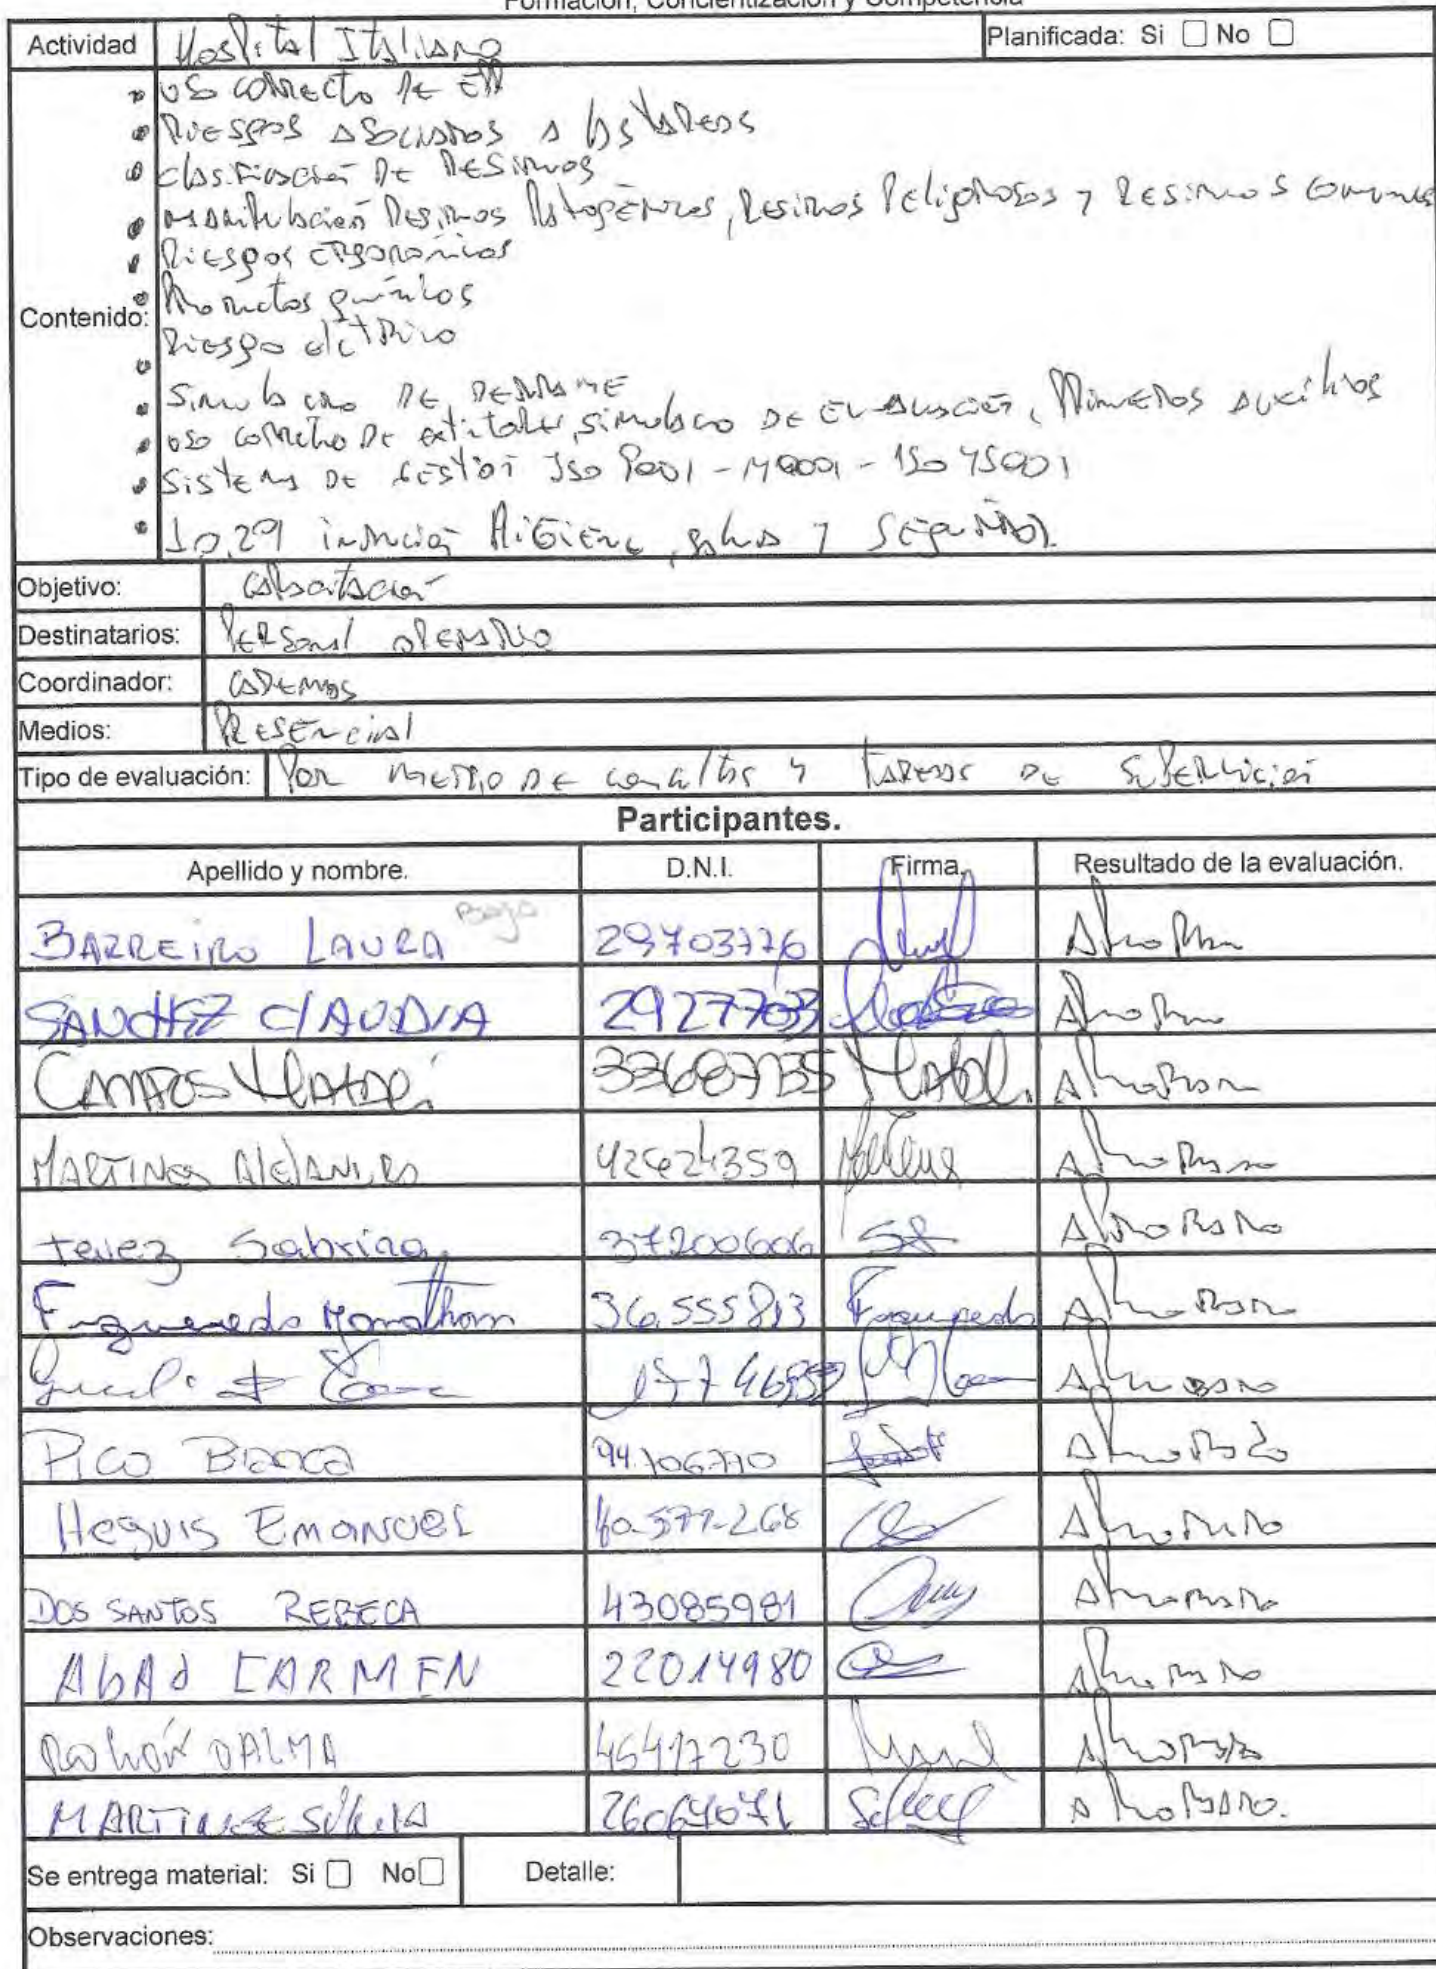 Formación, Concientización y Competencia
Actividad Hospital Italiano Planificada: Si No
USO CORRECTO DE EPP
RIESGOS ASOCIADOS A LAS TAREAS
Clasificación DE RESIDUOS
Manipulación Residuos Patogénicos, Residuos Peligrosos y Residuos comunes
Riesgos ergonómicos
Contenido: Productos químicos
Riesgo eléctrico
Simulacro DE DERRAME
USO correcto De extintores, simulacro DE EVACUACIÓN, Primeros Auxilios
Sistema DE Gestión ISO 9001 - 14001 - ISO 45001
10.29 inducción HIGIENE, salud y Seguridad.
Objetivo: Capacitación
Destinatarios: Personal operativo
Coordinador: 
Medios: Presencial
Tipo de evaluación: Por medio DE consultas y tareas DE Supervición
Participantes.
Apellido y nombre. D.N.I. Firma. Resultado de la evaluación.
BARREIRO LAURA Bajo 29703776 Aprobado
SANCHEZ CLAUDIA 29277033 Aprobado
CAMPOS 33687135 Aprobado
MARTINEZ ALEJANDRO 42624359 Aprobado
tevez Sabrina 37200606 Aprobado
Figueredo Jonathan 36.555813 Figueredo Aprobado
Aprobado
Pico Bianca 94.106710 Aprobado
Heguis Emanuel 40.572.268 Aprobado
DOS SANTOS REBECA 43085981 Aprobado
AbAd CARMEN 22014980 Aprobado
DALMA 45417230 Aprobado
MARTINEZ Silvia 26064071 Aprobado.
Se entrega material: Si No Detalle:
Observaciones: